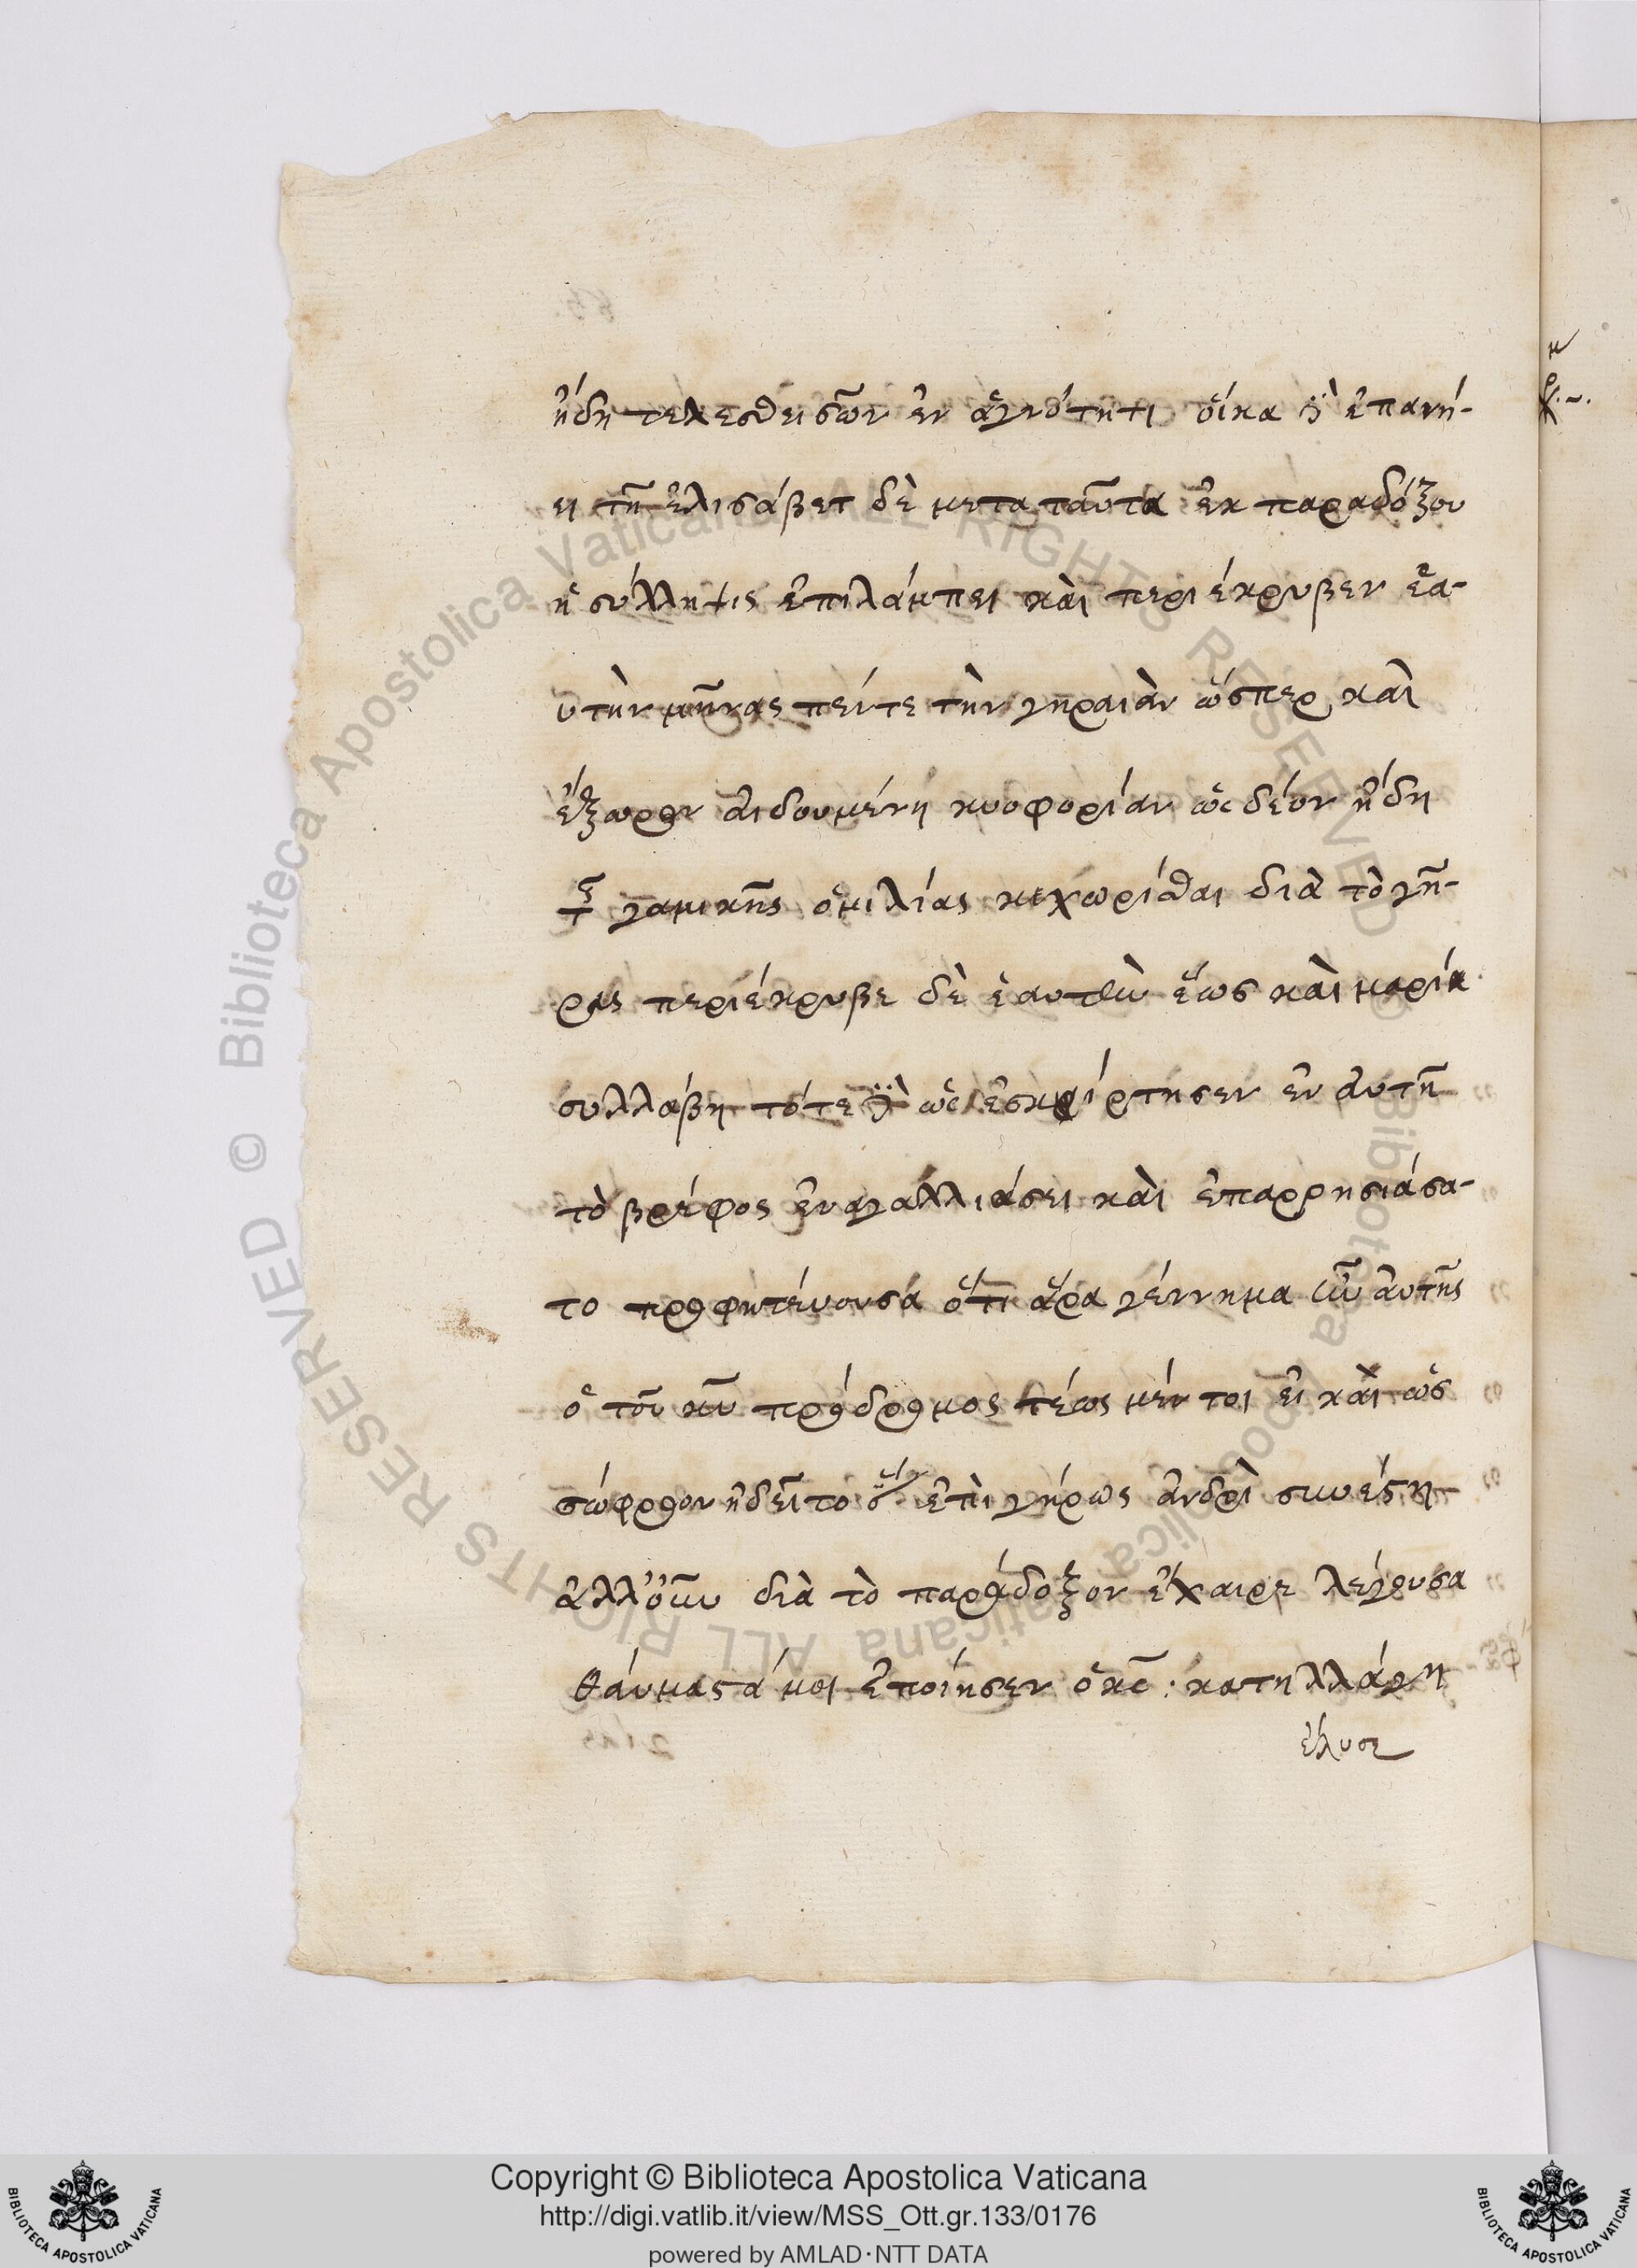 ἤδη τελεσθεισῶν ἐν ἁγνότητι οἴκα δὲ ἐπανή-
ει τῇ ἐλισάβετ δὲ μετα ταῦτα ἐκ παραδόξου
ἡ σύλληψις ἐπιλάμπει καὶ περιέκρυβεν ἑα-
υτὴν μῆνας πέντε τὴν γηραιὰν ὥσπερ καὶ
ἔξωρον αἰδουμένη κυοφορίαν ὡς δέον ἤδη
τῆς γαμικῆς ὁμιλίας κεχωρίσθαι διὰ τὸ γῆ-
ρας περιέκρυβε δὲ ἑαυτὴν ἕως καὶ μαρία
συλλάβη τότε δὲ ὡς ἐσκίρτησεν ἐν αὐτῇ
τὸ βρέφος ἐν ἀγαλλιάσει καὶ ἐπαρρησιάσα-
το προφητέυουσα ὅτι ἄρα γέννημα ἦν αὐτῆς
ὁ τοῦ κυ πρόδρομος τέως μέν τοι εἰ καὶ ὡς
σώφρων ἠδεῖτο ὅτι ἐπὶ γήρως ἀνδρὶ συνέστη
ἀλλ' οὖν διὰ τὸ παράδοξον ἔχαιρε λέγουσα
θάυμαστά μοι ἐποίησεν ὁ κς : κατηλλάγη
ἔλυσε
Copyright © Biblioteca Apostolica Vaticana
http://digi.vatlib.it/view/MSS_Ott.gr.133/0176
powered by AMLAD·NTT DATA
BIBLIOTECA APOSTOLICA VATICANA
BIBLIOTECA APOSTOLICA VATICANA
© Biblioteca Apostolica Vaticana ALL RIGHTS RESERVED
© Biblioteca Apostolica Vaticana ALL RIGHTS RESERVED